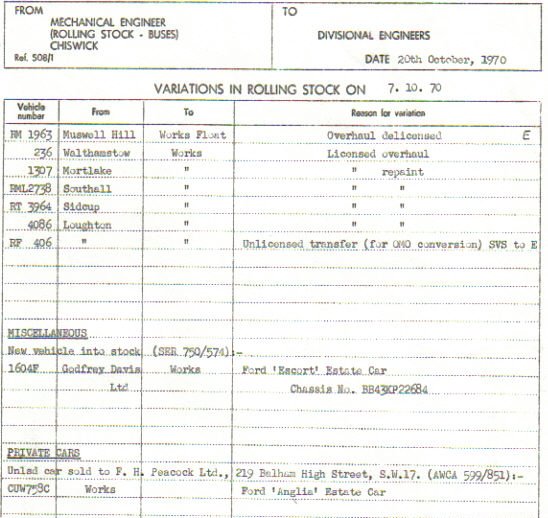 FROM
MECHANICAL ENGINEER
(ROLLING STOCK - BUSES)
CHISWICK
Ref. 508/1
TO
DIVISIONAL ENGINEERS
DATE 20th October, 1970
VARIATIONS IN ROLLING STOCK ON 7. 10. 70
Vehicle number From To Reason for variation
RM 1963 Muswell Hill Works Float Overhaul delicensed E
236 Walthamstow Works Licensed overhaul
1307 Mortlake " " repaint
RML2738 Southall " " "
RT 3964 Sidcup " " "
4086 Loughton " " "
RF 406 " " Unlicensed transfer (for OMO conversion) SVS to E
MISCELLANEOUS
New vehicle into stock (SER 750/574):-
1604F Godfrey Davis Works Ford 'Escort' Estate Car
Ltd Chassis No. BB43KP22684
PRIVATE CARS
Unlsd car sold to F. H. Peacock Ltd., 219 Balham High Street, S.W.17. (AWCA 599/851):-
CUW758C Works Ford 'Anglia' Estate Car